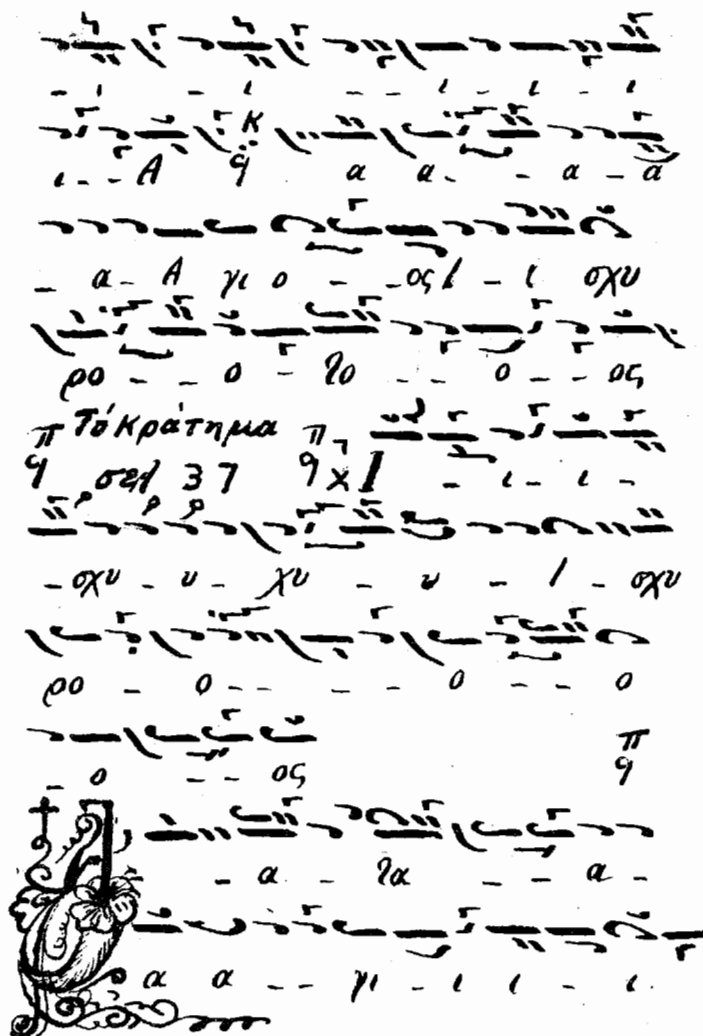 - ι - ι - - ι - ι - ι
ι - - Α α α - - α - α
- α - Α γι ο - - ος Ι - ι σχυ
ρο - - ο - το - - ο - - ος
Τό κράτημα Ι - ι - ι -
σελ 37
- σχυ - υ - χυ - υ - Ι - σχυ
ρο - ο - - - - ο - - ο
- ο - - ος
- α - τα - - α -
α α - - γι - ι ι - ι